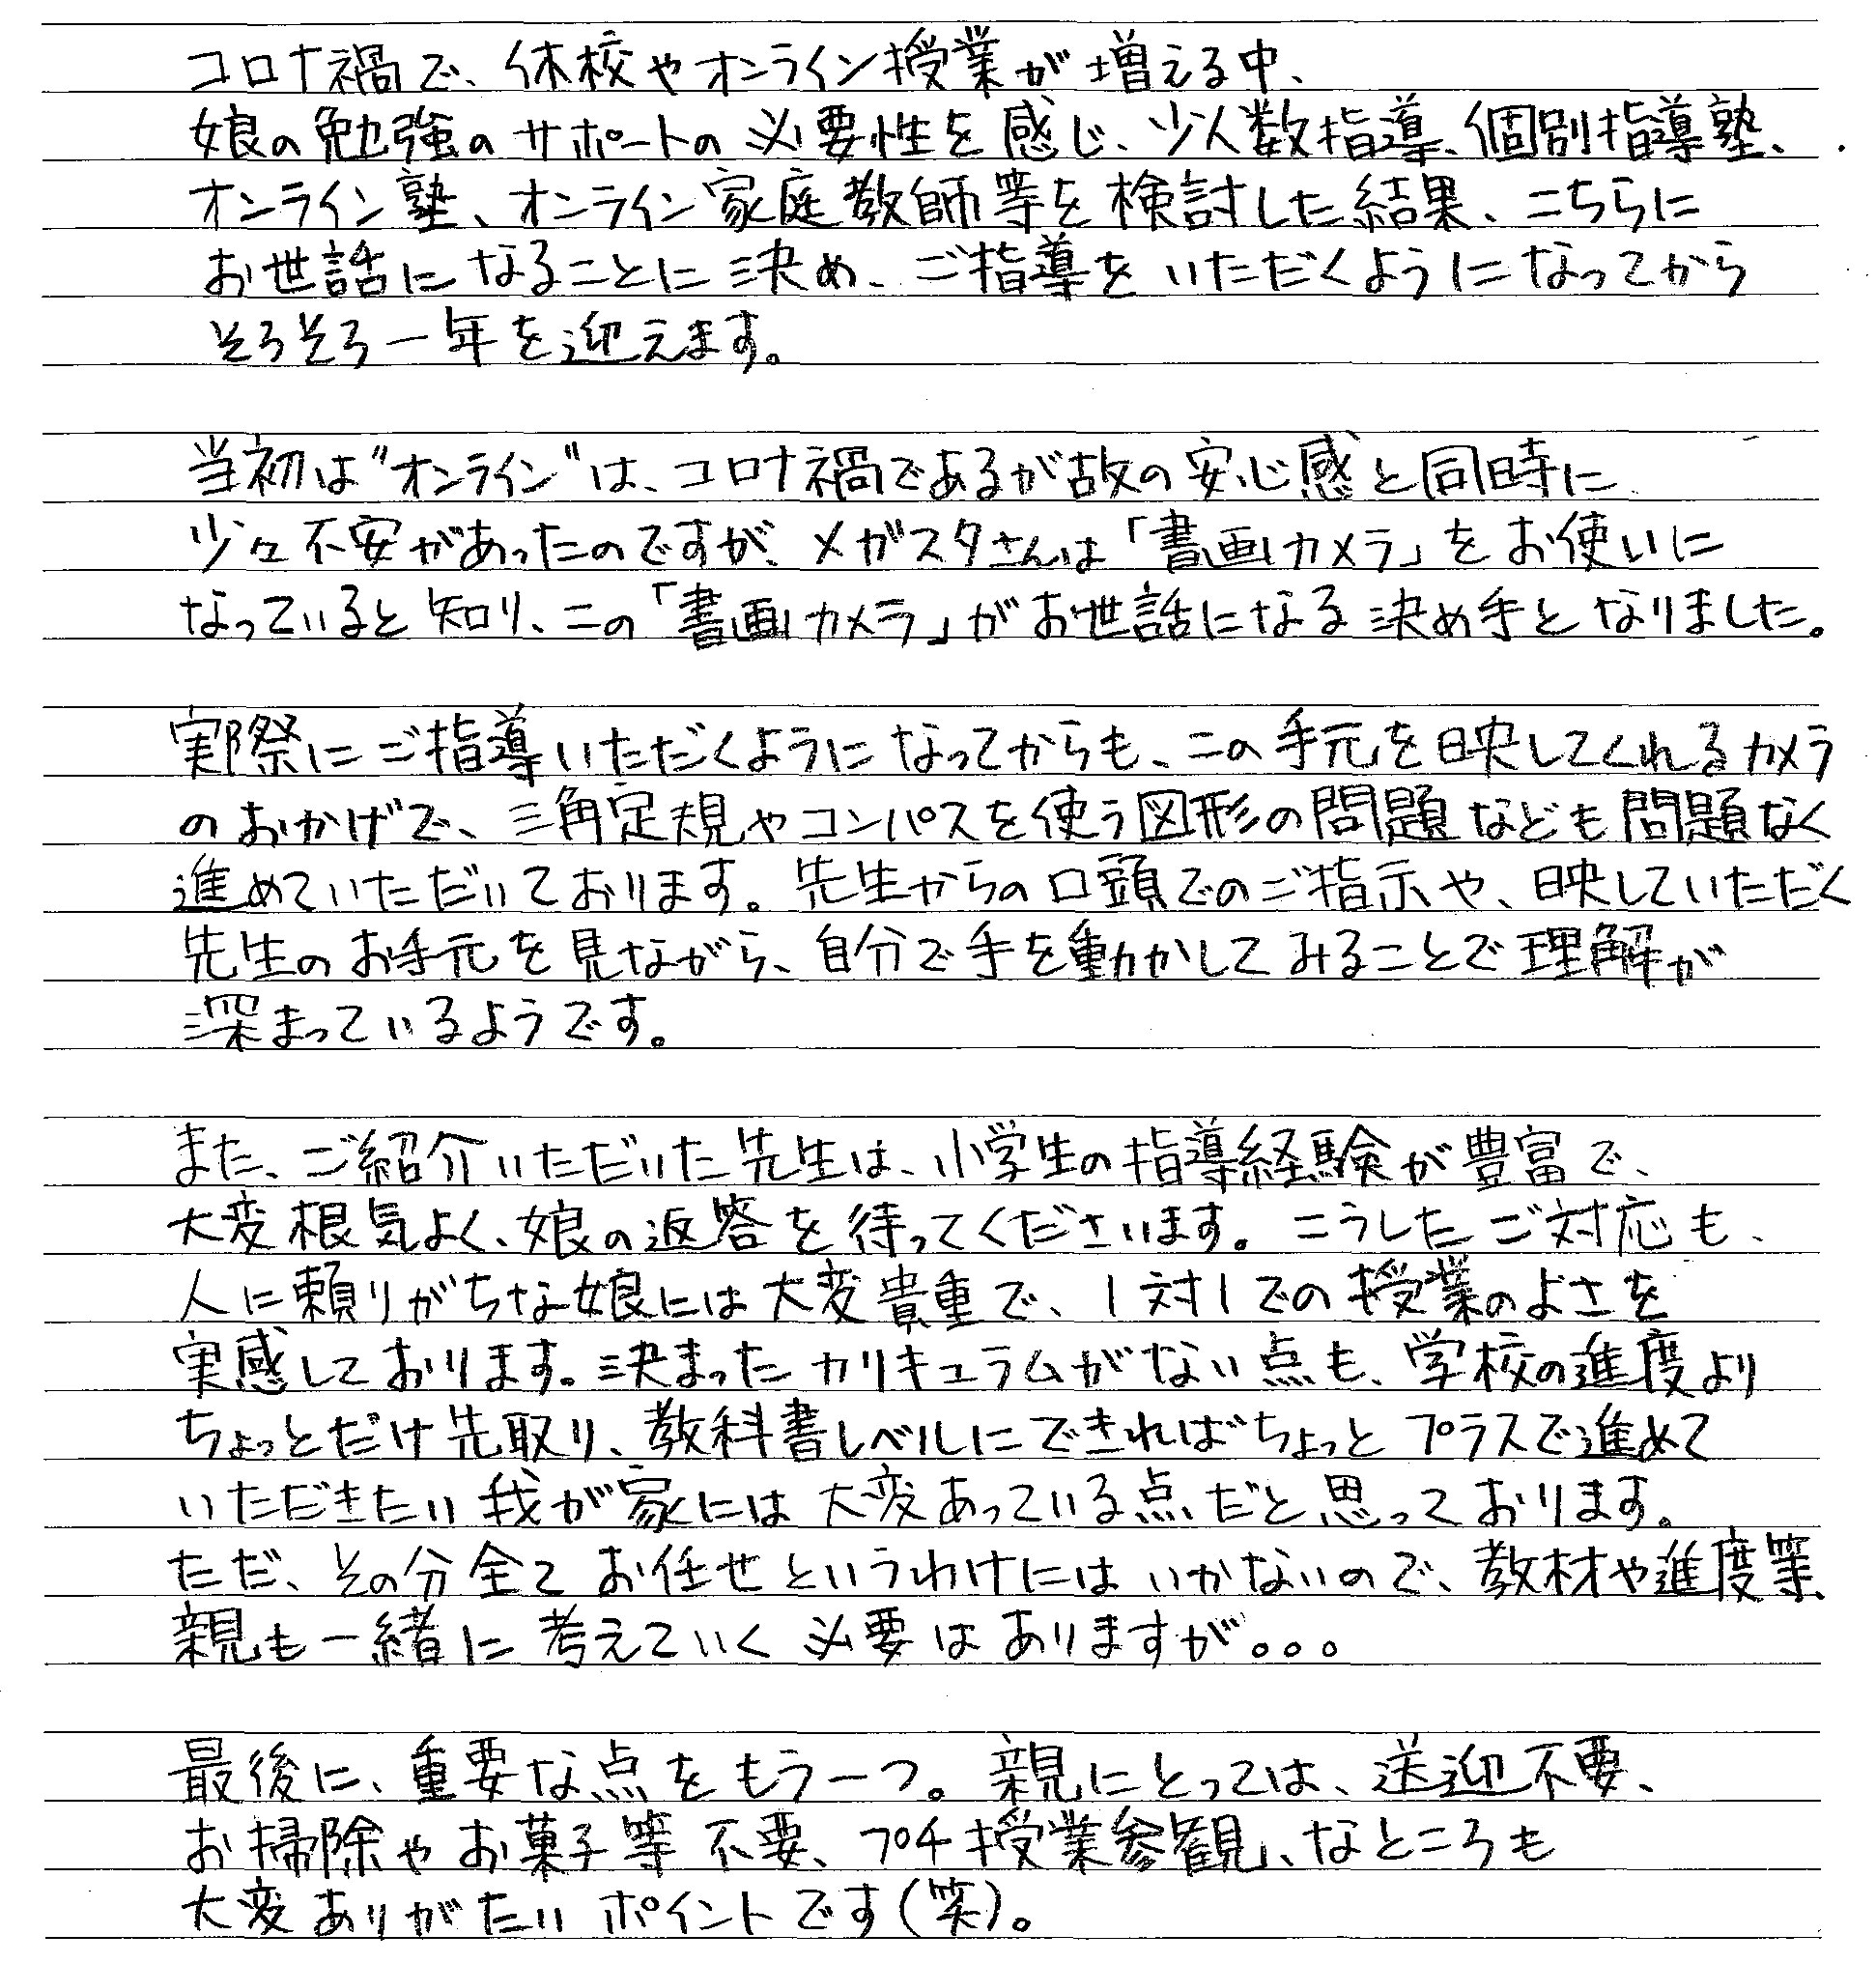 コロナ禍で、休校やオンライン授業が増える中、
娘の勉強のサポートの必要性を感じ、少人数指導、個別指導塾、
オンライン塾、オンライン家庭教師等を検討した結果、こちらに
お世話になることに決め、ご指導をいただくようになってから
そろそろ一年を迎えます。
当初は"オンライン"は、コロナ禍であるが故の安心感と同時に
少々不安があったのですが、メガスタさんは「書画カメラ」をお使いに
なっていると知り、この「書画カメラ」がお世話になる決め手となりました。
実際にご指導いただくようになってからも、この手元を映してくれるカメラ
のおかげで、三角定規やコンパスを使う図形の問題なども問題なく
進めていただいております。先生からの口頭でのご指示や、映していただく
先生のお手元を見ながら、自分で手を動かしてみることで理解が
深まっているようです。
また、ご紹介いただいた先生は、小学生の指導経験が豊富で、
大変根気よく、娘の返答を待ってくださいます。こうしたご対応も、
人に頼りがちな娘には大変貴重で、1対1での授業のよさを
実感しております。決まったカリキュラムがない点も、学校の進度より
ちょっとだけ先取り、教科書レベルにできればちょっとプラスで進めて
いただきたい我が家には大変あっている点だと思っております。
ただ、その分全てお任せというわけにはいかないので、教材や進度等、
親も一緒に考えていく必要はありますが。。。
最後に、重要な点をもう一つ。親にとっては、送迎不要、
お掃除やお菓子等不要、プチ授業参観、なところも
大変ありがたいポイントです(笑)。